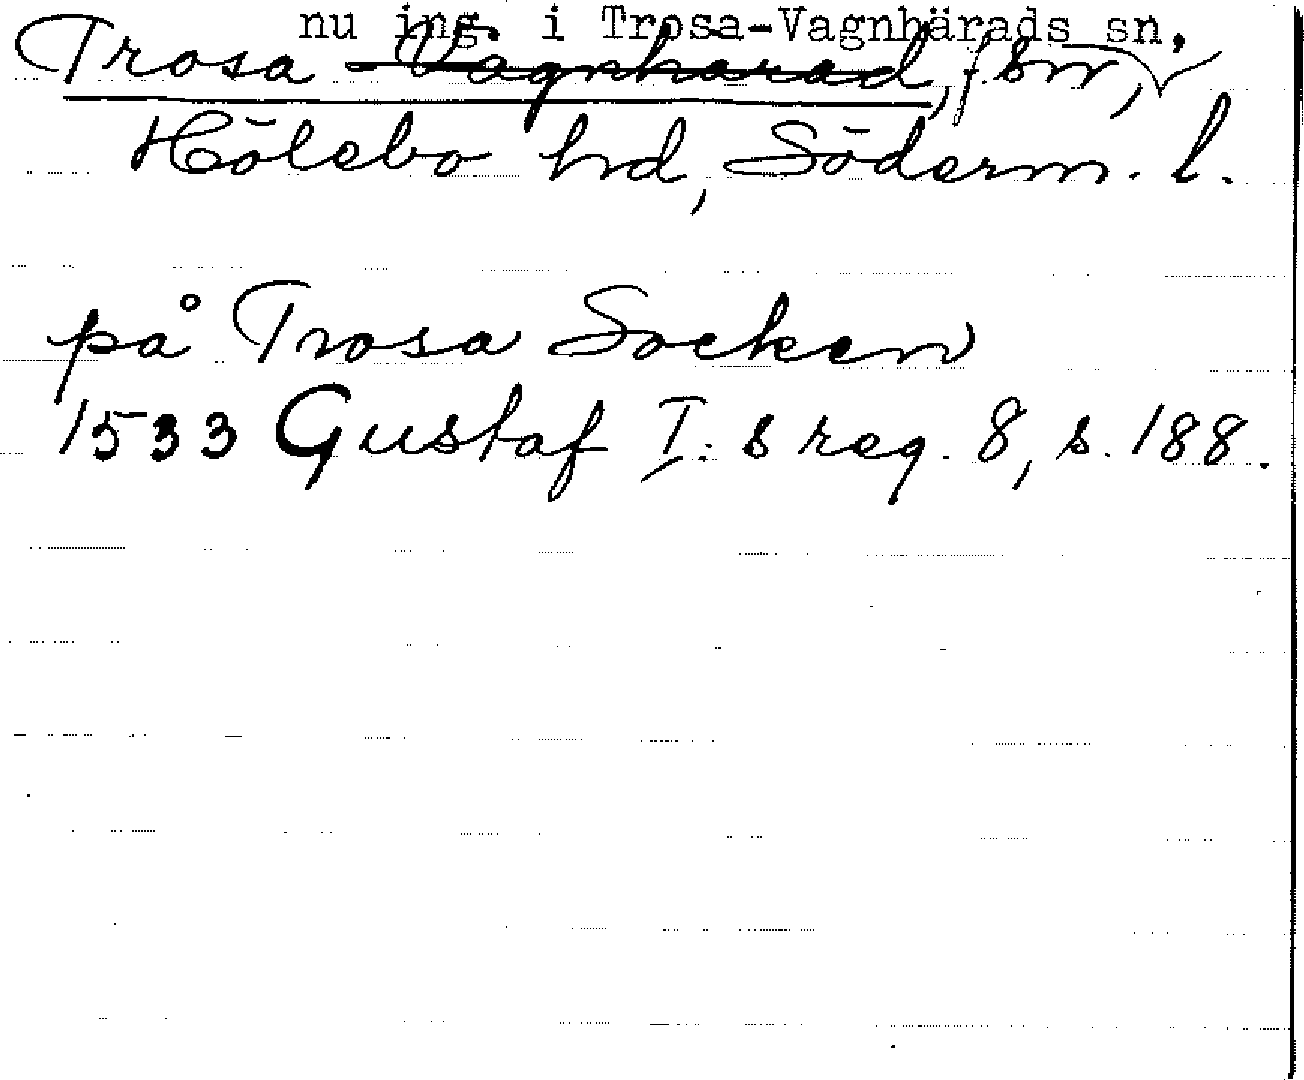 nu ing. i Trosa-Vagnhärads sn.
Trosa - Vagnhärad, f. sn,
Hölebo hd, Söderm. l.
på Trosa Socken
1533 Gustaf I:s reg. 8, s. 188.